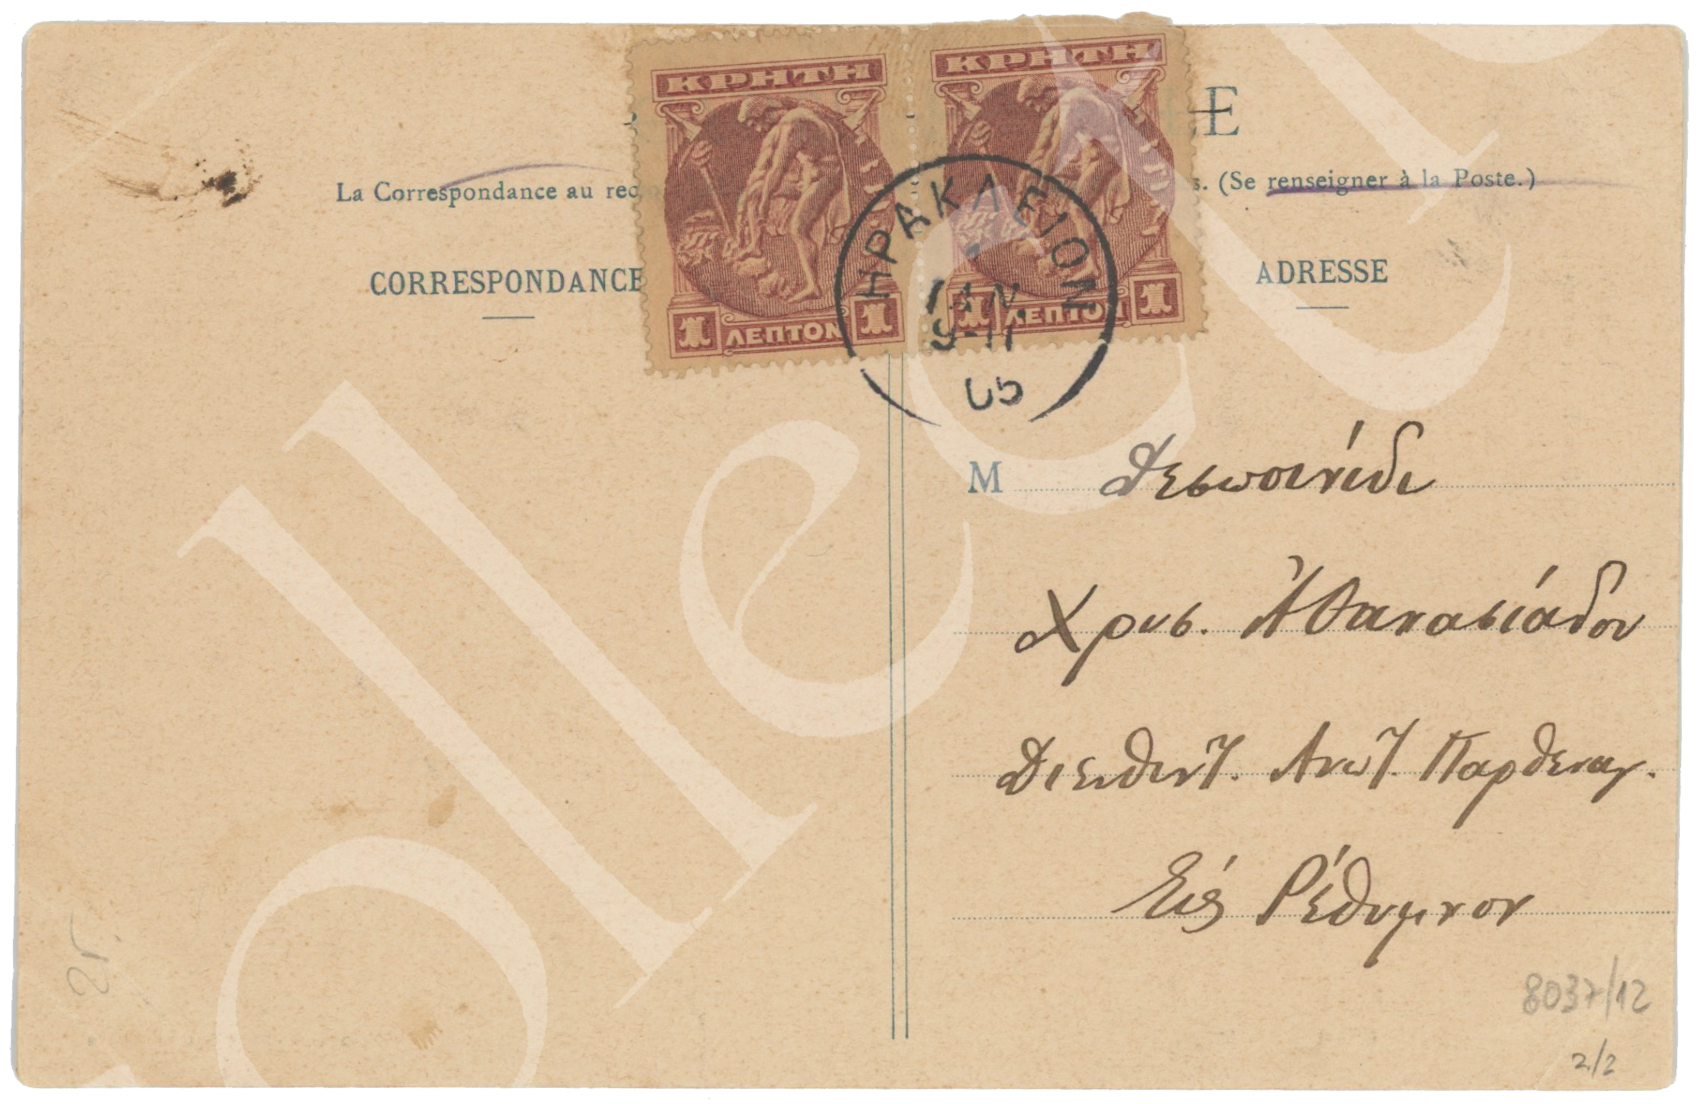 ΚΡΗΤΗ ΚΡΗΤΗ
E
La Correspondance au s. (Se renseigner à la Poste.)
CORRESPONDANCE ADRESSE
1 ΛΕΠΤΟΝ 1 1 ΛΕΠΤΟΝ 1
ΗΡΑΚΛΕΙΟΝ
ΙΑΝ
9-11
05
M Δεσποινίδι
Χρυσ. Ἀθανασιάδου
Διευθυντ. Ανωτ. Παρθεναγ.
Εἰς Ῥέθυμνον
8037/12
2/2